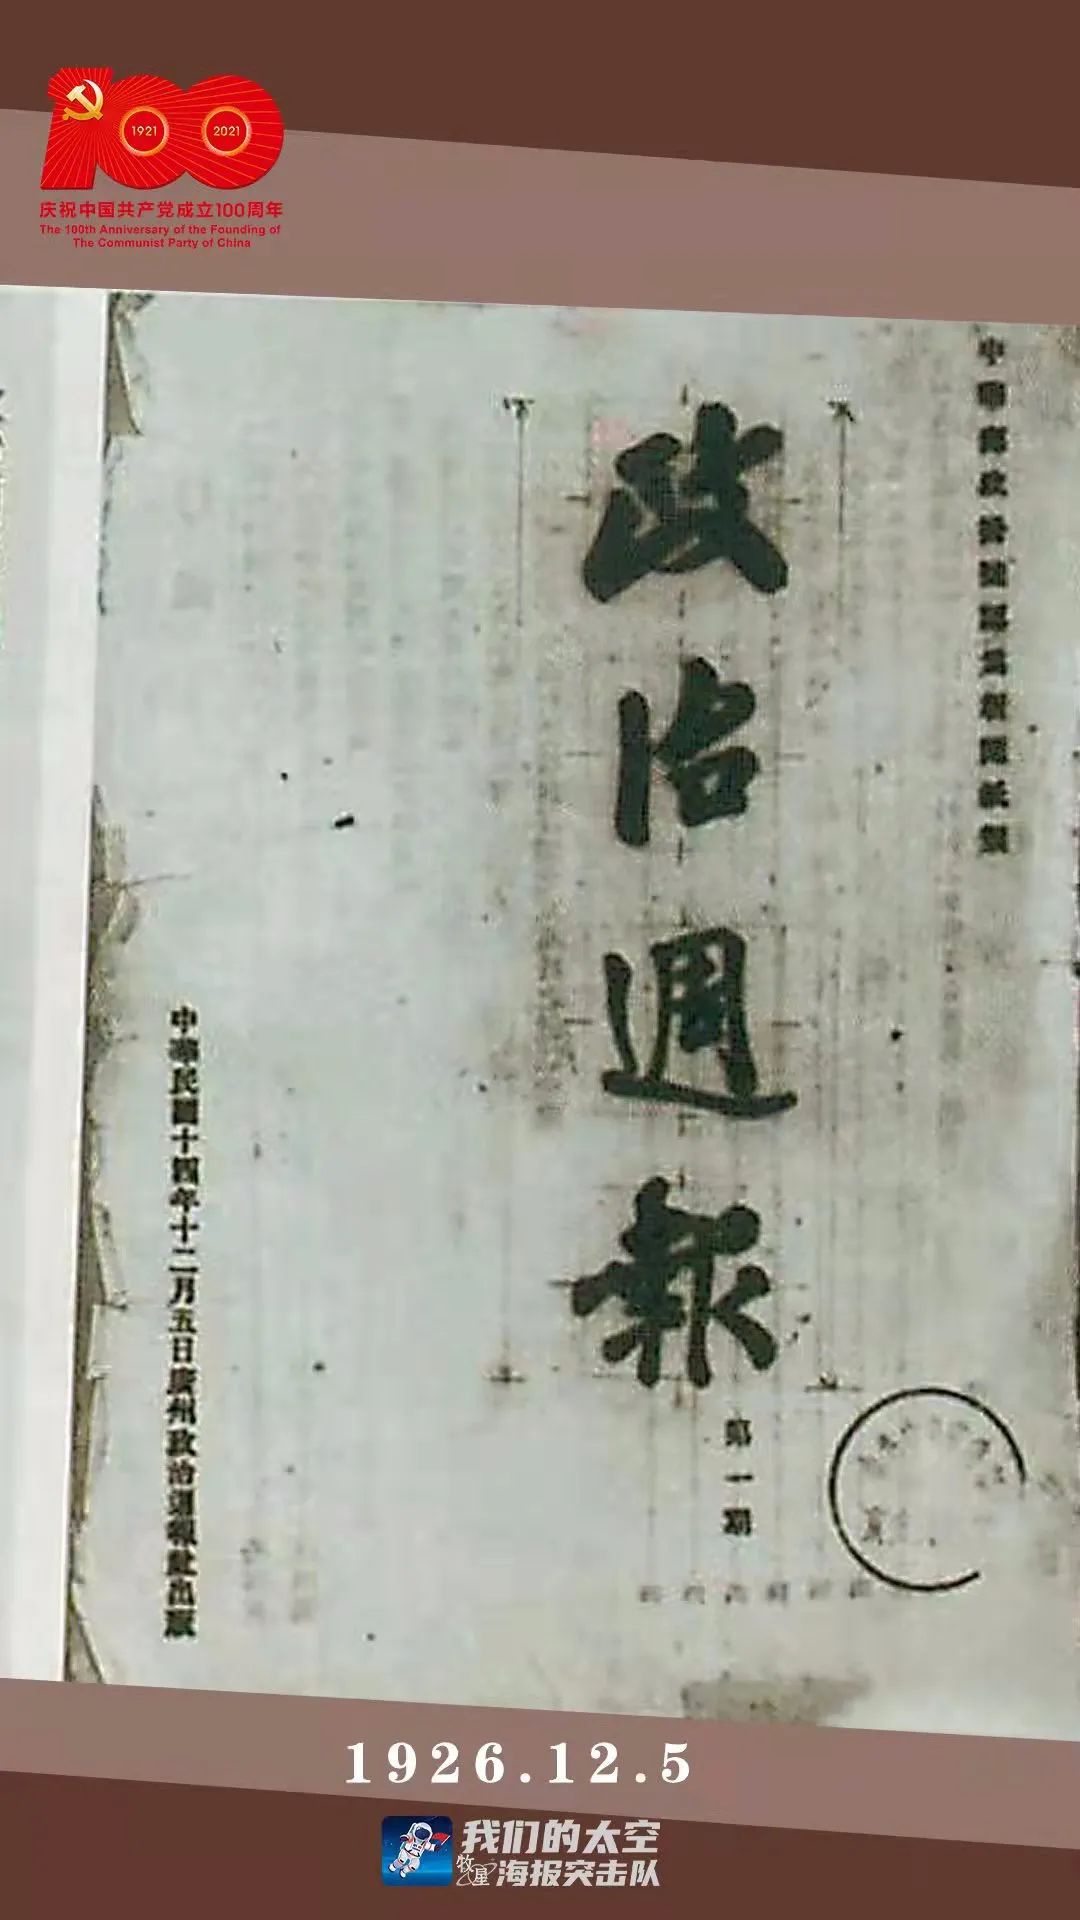 100
1921
2021
庆祝中国共产党成立100周年
The 100th Anniversary of the Founding of
The Communist Party of China
中華郵政特
政治週報
第一期
中華民國十四年十二月五日廣州政治週報社出版
1926.12.5
我们的太空
牧星
海报突击队